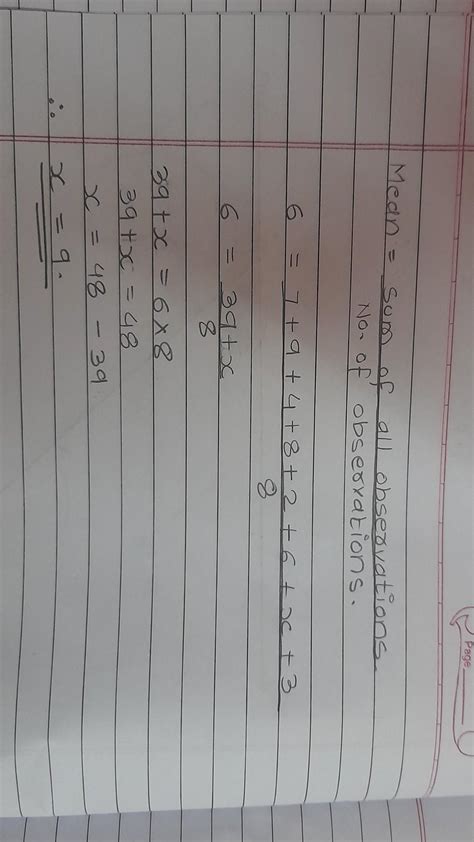 Page
Mean = Sum of all observations.
No. of observations.
6 = 7+9+4+8+2+6+x+3
8
6 = 39+x
8
39+x = 6×8
39+x = 48
x = 48 - 39
∴ x = 9.